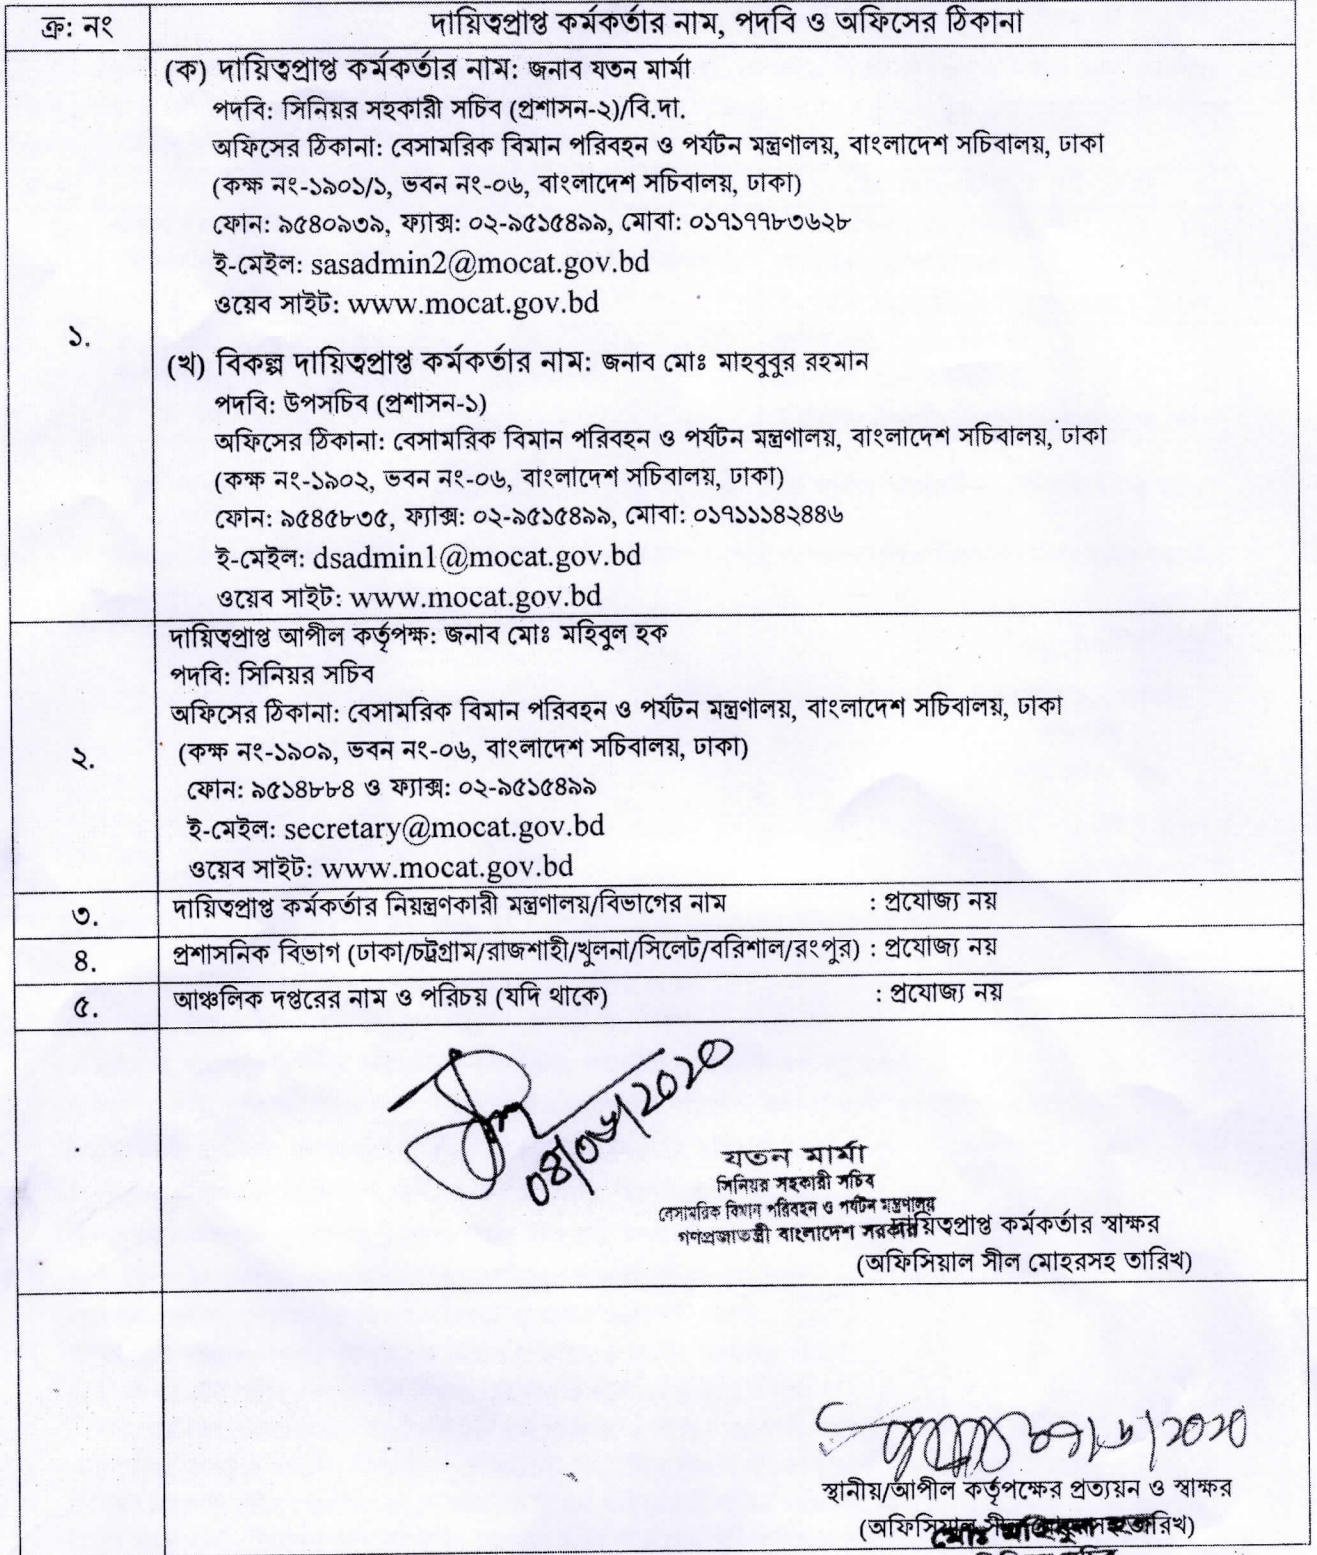 ক্র: নং
দায়িত্বপ্রাপ্ত কর্মকর্তার নাম, পদবি ও অফিসের ঠিকানা
১.
(ক) দায়িত্বপ্রাপ্ত কর্মকর্তার নাম: জনাব যতন মার্মা
পদবি: সিনিয়র সহকারী সচিব (প্রশাসন-২)/বি.দা.
অফিসের ঠিকানা: বেসামরিক বিমান পরিবহন ও পর্যটন মন্ত্রণালয়, বাংলাদেশ সচিবালয়, ঢাকা
(কক্ষ নং-১৯০১/১, ভবন নং-০৬, বাংলাদেশ সচিবালয়, ঢাকা)
ফোন: ৯৫৪০৯৩৯, ফ্যাক্স: ০২-৯৫১৫৪৯৯, মোবা: ০১৭১৭৭৮৩৬২৮
ই-মেইল: sasadmin2@mocat.gov.bd
ওয়েব সাইট: www.mocat.gov.bd
(খ) বিকল্প দায়িত্বপ্রাপ্ত কর্মকর্তার নাম: জনাব মোঃ মাহবুবুর রহমান
পদবি: উপসচিব (প্রশাসন-১)
অফিসের ঠিকানা: বেসামরিক বিমান পরিবহন ও পর্যটন মন্ত্রণালয়, বাংলাদেশ সচিবালয়, ঢাকা
(কক্ষ নং-১৯০২, ভবন নং-০৬, বাংলাদেশ সচিবালয়, ঢাকা)
ফোন: ৯৫৪৫৮৩৫, ফ্যাক্স: ০২-৯৫১৫৪৯৯, মোবা: ০১৭১১১৪২৪৪৬
ই-মেইল: dsadmin1@mocat.gov.bd
ওয়েব সাইট: www.mocat.gov.bd
২.
দায়িত্বপ্রাপ্ত আপীল কর্তৃপক্ষ: জনাব মোঃ মহিবুল হক
পদবি: সিনিয়র সচিব
অফিসের ঠিকানা: বেসামরিক বিমান পরিবহন ও পর্যটন মন্ত্রণালয়, বাংলাদেশ সচিবালয়, ঢাকা
(কক্ষ নং-১৯০৯, ভবন নং-০৬, বাংলাদেশ সচিবালয়, ঢাকা)
ফোন: ৯৫১৪৮৮৪ ও ফ্যাক্স: ০২-৯৫১৫৪৯৯
ই-মেইল: secretary@mocat.gov.bd
ওয়েব সাইট: www.mocat.gov.bd
৩. দায়িত্বপ্রাপ্ত কর্মকর্তার নিয়ন্ত্রণকারী মন্ত্রণালয়/বিভাগের নাম : প্রযোজ্য নয়
৪. প্রশাসনিক বিভাগ (ঢাকা/চট্রগ্রাম/রাজশাহী/খুলনা/সিলেট/বরিশাল/রংপুর) : প্রযোজ্য নয়
৫. আঞ্চলিক দপ্তরের নাম ও পরিচয় (যদি থাকে) : প্রযোজ্য নয়
০৪/০৬/২০২০
যতন মার্মা
সিনিয়র সহকারী সচিব
বেসামরিক বিমান পরিবহন ও পর্যটন মন্ত্রণালয়
গণপ্রজাতন্ত্রী বাংলাদেশ সরকার
দায়িত্বপ্রাপ্ত কর্মকর্তার স্বাক্ষর
(অফিসিয়াল সীল মোহরসহ তারিখ)
স্থানীয়/আপীল কর্তৃপক্ষের প্রত্যয়ন ও স্বাক্ষর
(অফিসিয়াল সীল তারিখ)
মোঃ মহিবুল হক